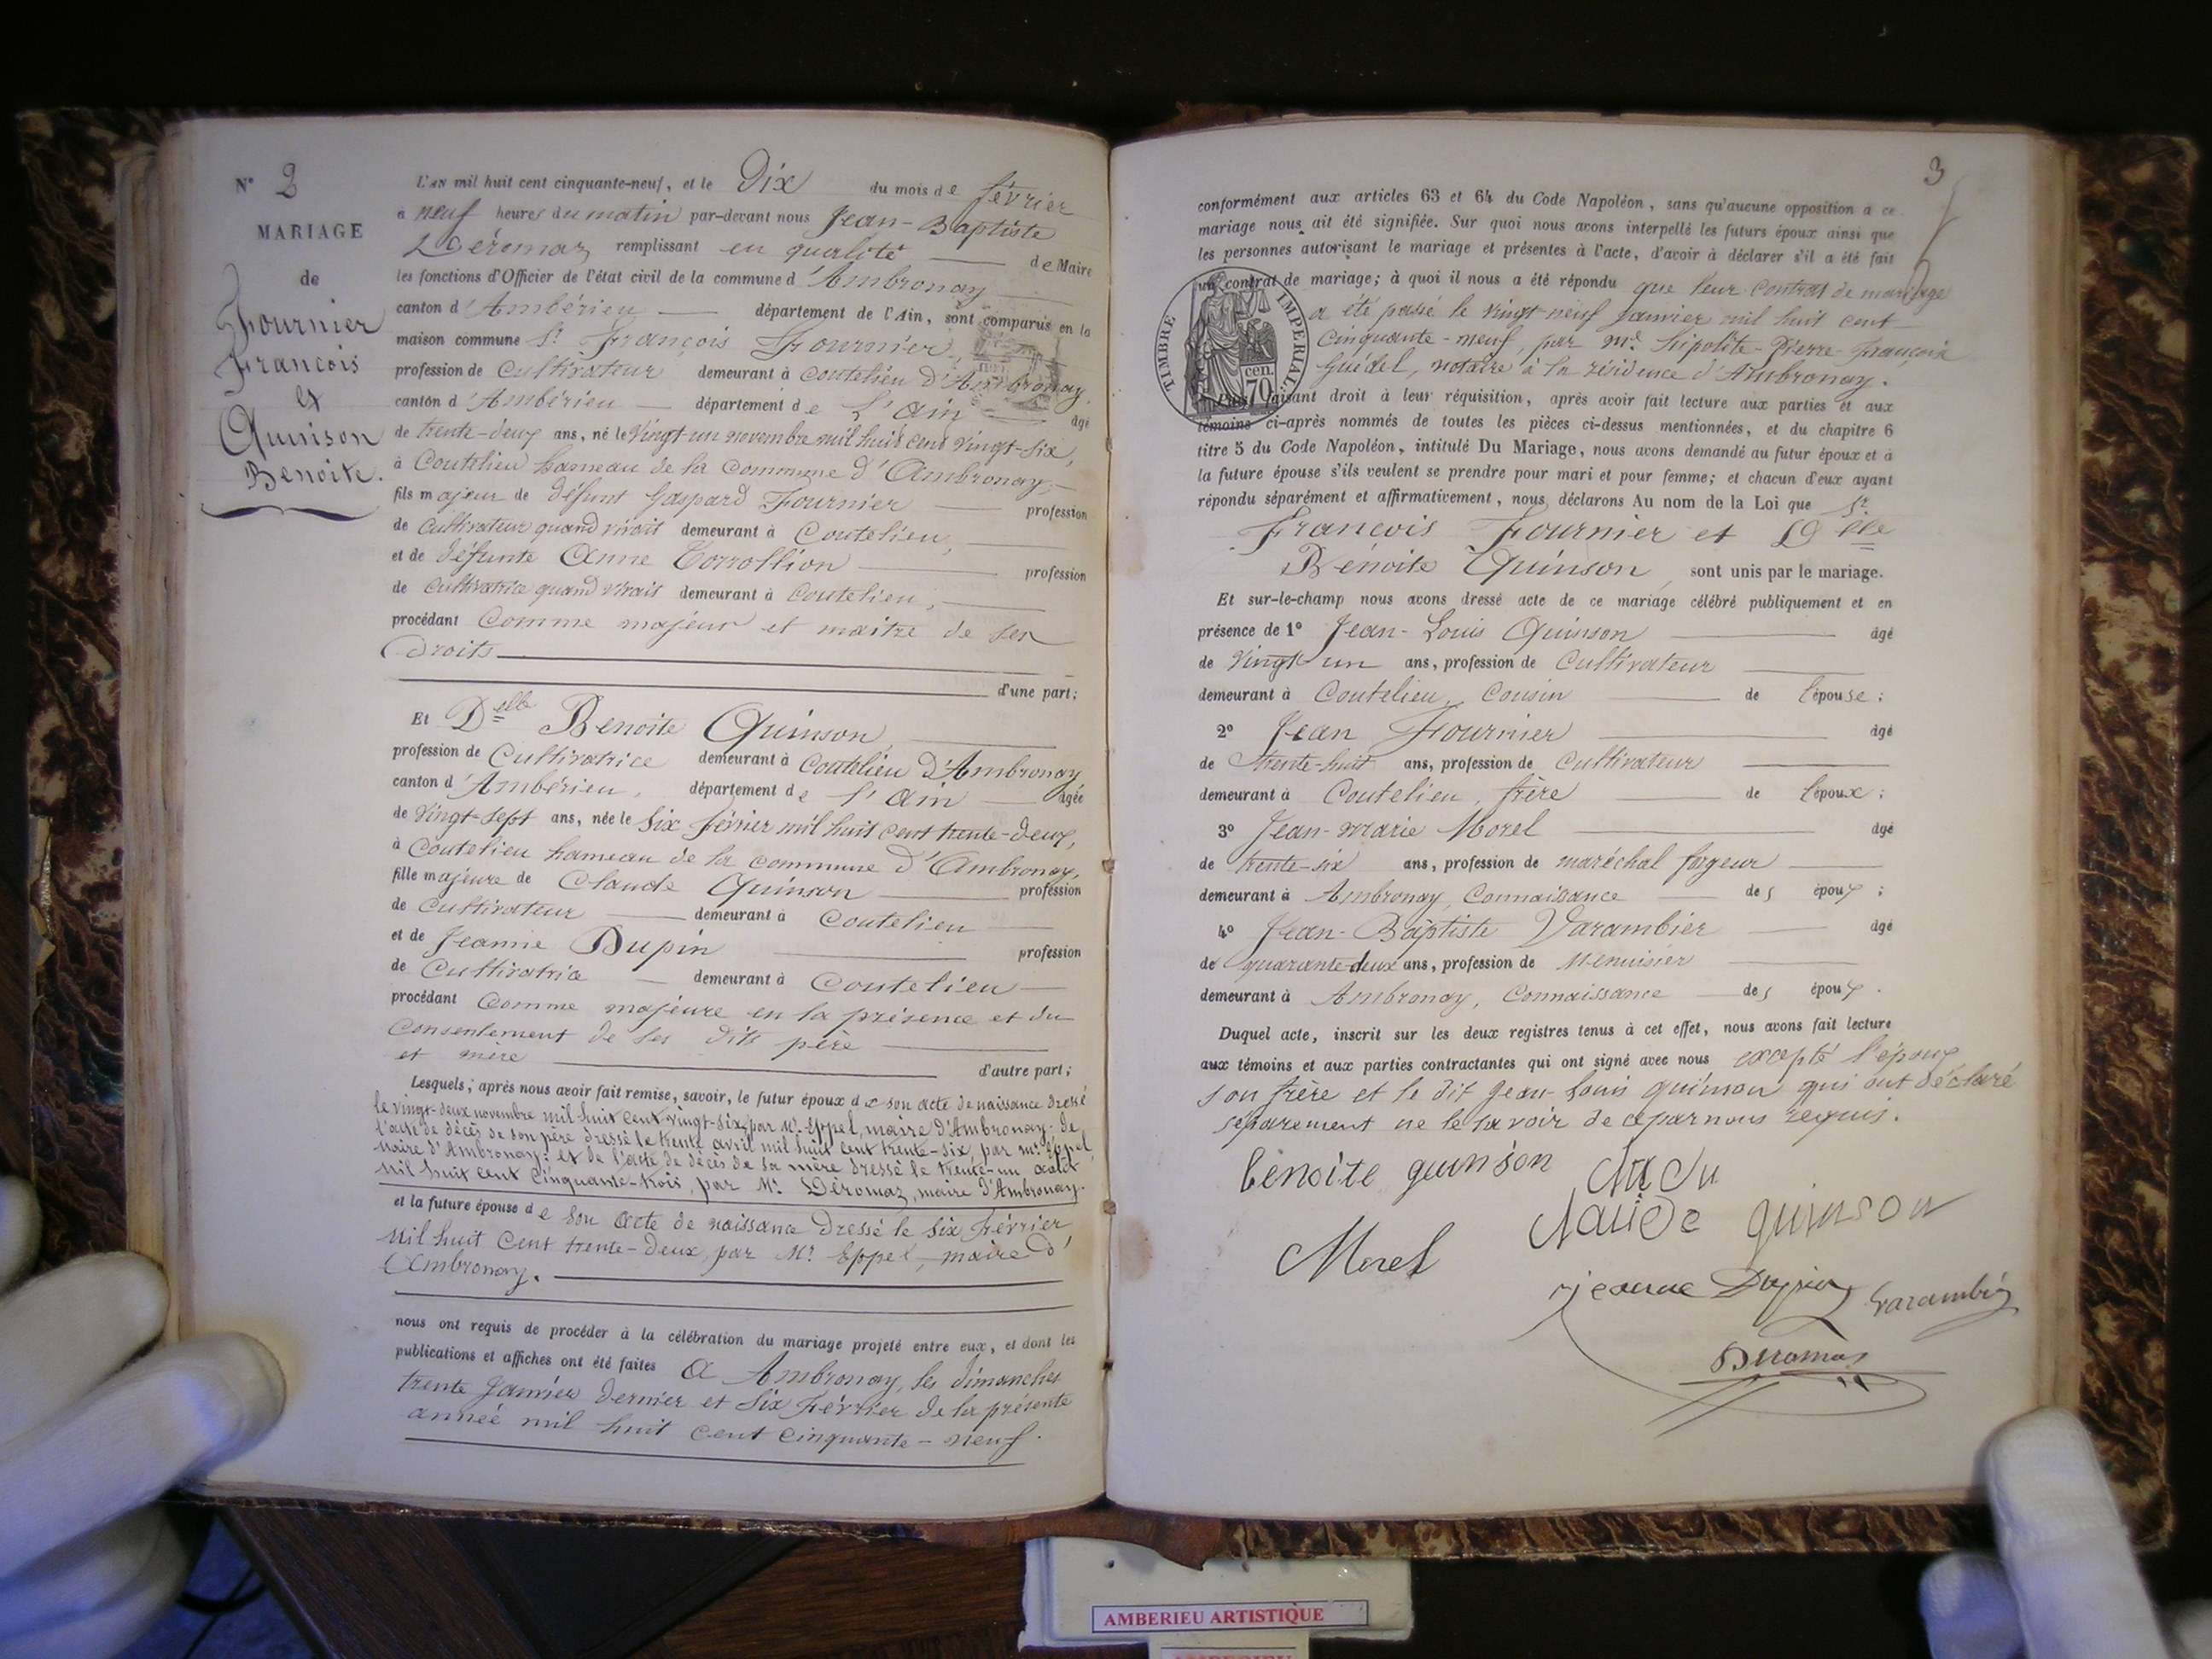 N° 2
MARIAGE
de
Fournier
François
et
Quinson
Benoite.
L'AN mil huit cent cinquante-neuf, et le Dix du mois de février
à neuf heures du matin par-devant nous Jean-Baptiste
Déromaz remplissant en qualité de Maire
les fonctions d'Officier de l'état civil de la commune d'Ambronay
canton d'Ambérieu département de l'Ain, sont comparus en la
maison commune Sr François Fournier,
profession de Cultivateur demeurant à Coutelieu d'Ambronay,
canton d'Ambérieu département de l'Ain âgé
de trente-deux ans, né le Vingt-un novembre mil huit cent vingt-six,
à Coutelieu hameau de la Commune d'Ambronay,
fils majeur de défunt Gaspard Fournier profession
de Cultivateur quand vivait demeurant à Coutelieu,
et de défunte Anne profession
de Cultivatrice quand vivait demeurant à Coutelieu,
procédant Comme majeur et maitre de ses
droits d'une part;
Et Delle Benoite Quinson,
profession de Cultivatrice demeurant à Coutelieu d'Ambronay
canton d'Ambérieu, département de l'Ain âgée
de Vingt-sept ans, née le Six février mil huit cent trente-deux,
à Coutelieu hameau de la commune d'Ambronay,
fille majeure de Claude Quinson profession
de Cultivateur demeurant à Coutelieu
et de Jeanne Dupin profession
de Cultivatrice demeurant à Coutelieu
procédant Comme majeure en la présence et du
Consentement de ses dits père
et mère d'autre part;
Lesquels, après nous avoir fait remise, savoir, le futur époux de son acte de naissance dressé
le vingt-deux novembre mil huit cent vingt-six, par Mr Eppel, maire d'Ambronay; de
l'acte de décès de son père dressé le trente avril mil huit cent trente-six, par Mr Eppel,
maire d'Ambronay; et de l'acte de décès de sa mère dressé le trente-un août
mil huit cent cinquante-trois, par Mr Déromaz, maire d'Ambronay.
et la future épouse de son acte de naissance dressé le six février
mil huit cent trente-deux, par Mr Eppel, maire d'
Ambronay.
nous ont requis de procéder à la célébration du mariage projeté entre eux, et dont les
publications et affiches ont été faites à Ambronay, les dimanches
trente Janvier dernier et six février de la présente
année mil huit cent cinquante-neuf.
3
conformément aux articles 63 et 64 du Code Napoléon, sans qu'aucune opposition à ce
mariage nous ait été signifiée. Sur quoi nous avons interpellé les futurs époux ainsi que
les personnes autorisant le mariage et présentes à l'acte, d'avoir à déclarer s'il a été fait
un contrat de mariage; à quoi il nous a été répondu que leur contrat de mariage
a été passé le vingt-neuf janvier mil huit cent
cinquante-neuf, par Me hipolite-Pierre-François
Guédel, notaire à la résidence d'Ambronay.
TIMBRE IMPERIAL
70 cen.
faisant droit à leur réquisition, après avoir fait lecture aux parties et aux
témoins ci-après nommés de toutes les pièces ci-dessus mentionnées, et du chapitre 6
titre 5 du Code Napoléon, intitulé Du Mariage, nous avons demandé au futur époux et à
la future épouse s'ils veulent se prendre pour mari et pour femme; et chacun d'eux ayant
répondu séparément et affirmativement, nous déclarons Au nom de la Loi que Sr
François Fournier et Dlle
Benoite Quinson, sont unis par le mariage.
Et sur-le-champ nous avons dressé acte de ce mariage célébré publiquement et en
présence de 1° Jean-Louis Quinson âgé
de Vingt-un ans, profession de Cultivateur
demeurant à Coutelieu, Cousin de l'épouse;
2° Jean Fournier âgé
de trente-huit ans, profession de Cultivateur
demeurant à Coutelieu, frère de l'époux;
3° Jean-Marie Morel âgé
de trente-six ans, profession de maréchal forgeur
demeurant à Ambronay, Connaissance des époux;
4° Jean-Baptiste Varambier âgé
de quarante-deux ans, profession de Menuisier
demeurant à Ambronay, Connaissance des époux.
Duquel acte, inscrit sur les deux registres tenus à cet effet, nous avons fait lecture
aux témoins et aux parties contractantes qui ont signé avec nous excepté l'époux
son frère et le dit Jean-Louis Quinson qui ont déclaré
séparément ne le savoir de ce par nous requis.
benoite quinson
claude quinson
Morel
jeanne Dupin
Varambier
Déromaz
AMBERIEU ARTISTIQUE